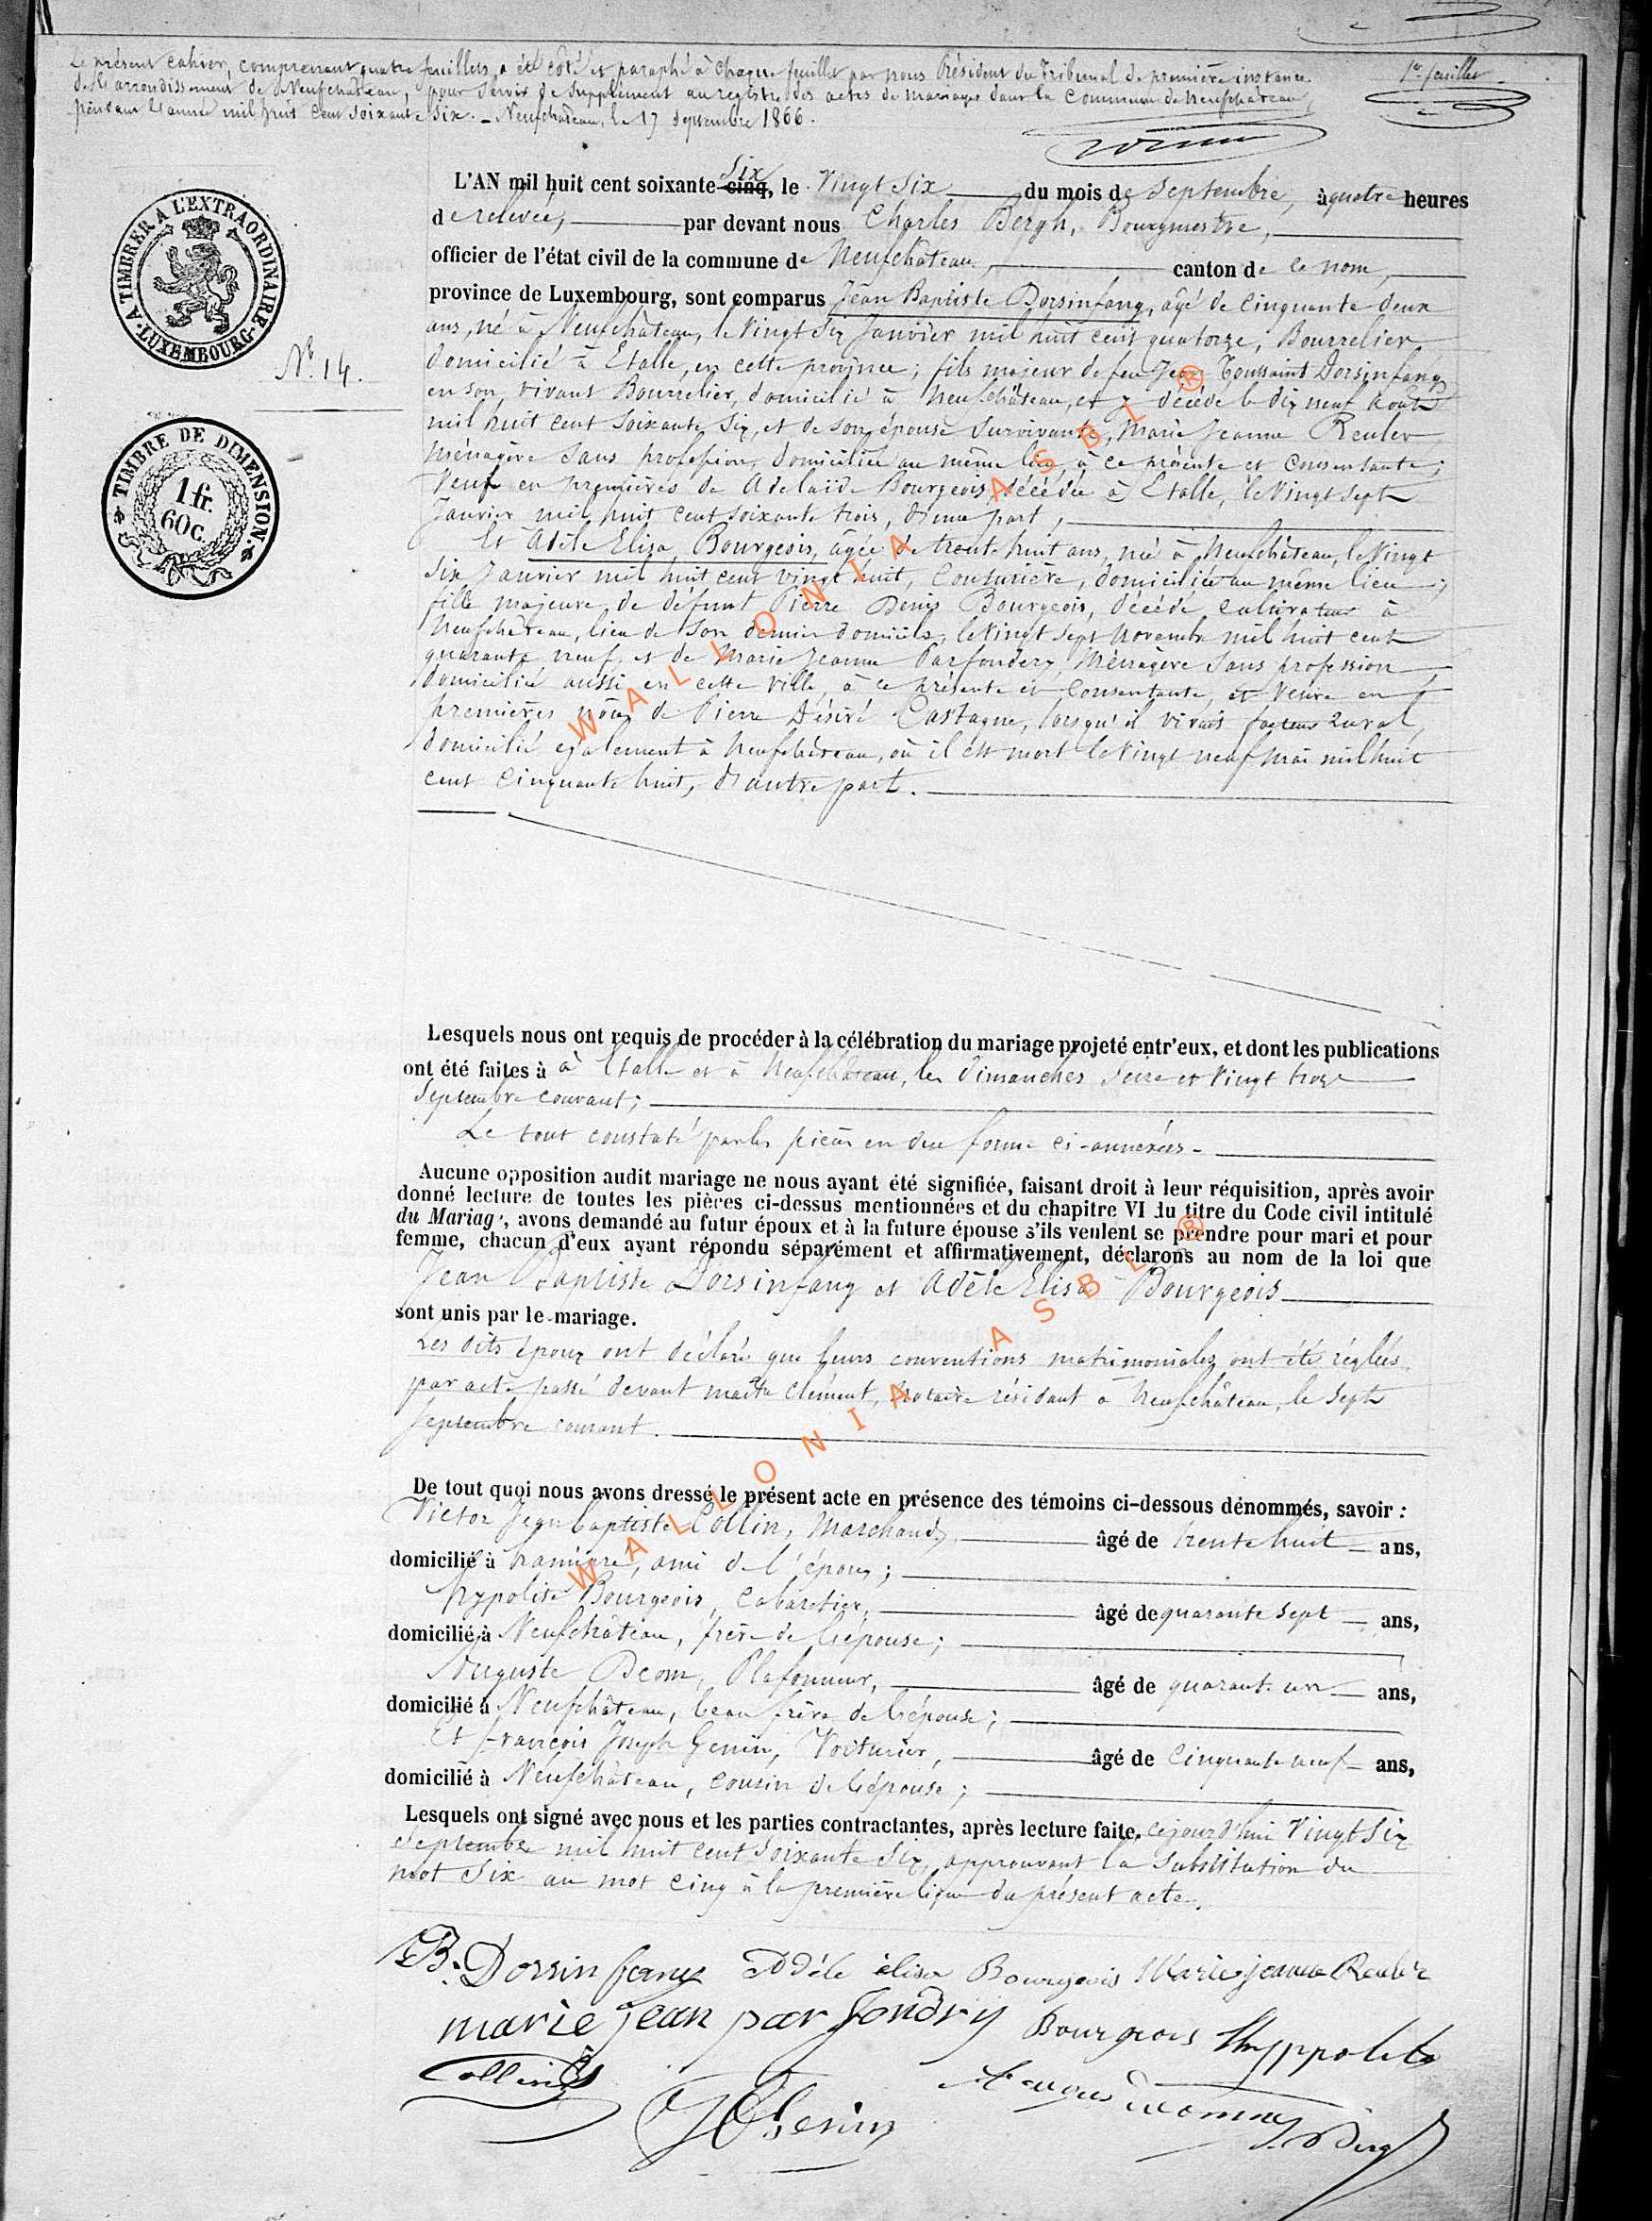 Le présent cahier, comprenant quatre feuillets, a été coté et paraphé à chaque feuillet par nous Président du Tribunal de première instance
de l'arrondissement de Neufchâteau, pour servir de supplément au registre des actes de mariages dans la Commune de Neufchâteau,
pendant l'année mil huit cent soixante six. - Neufchâteau, le 17 septembre 1866.
1er feuillet
A TIMBRER A L'EXTRAORDINAIRE
LUXEMBOURG
No. 14.
TIMBRE DE DIMENSION
1 fr.
60 c.
six
L'AN mil huit cent soixante cinq, le vingt six du mois de septembre, à quatre heures
de relevée, par devant nous Charles Bergh, Bourgmestre,
officier de l'état civil de la commune de Neufchâteau, canton de ce nom,
province de Luxembourg, sont comparus Jean Baptiste Dorsinfang, âgé de cinquante deux
ans, né à Neufchâteau, le vingt six Janvier mil huit cent quatorze, Bourrelier
domicilié à Etalle, en cette province; fils majeur de feu Jean Toussaint Dorsinfang
en son vivant Bourrelier, domicilié à Neufchâteau, et y décédé le dix neuf Août
mil huit cent soixante six, et de son épouse survivante, Marie Jeanne Reuler
ménagère sans profession, domiciliée au même lieu, à ce présente et consentante;
Veuf en premières de Adelaïde Bourgeois, décédée à Etalle, le vingt sept
Janvier mil huit cent soixante trois, d'une part,
Et Adèle Elisa Bourgeois, âgée de trente huit ans, née à Neufchâteau, le vingt
six Janvier mil huit cent vingt huit, Couturière, domiciliée au même lieu;
fille majeure de défunt Pierre Denis Bourgeois, décédé, cultivateur à
Neufchâteau, lieu de son dernier domicile, le vingt sept novembre mil huit cent
quarante neuf, et de Marie Jeanne Parfondery Ménagère sans profession
domiciliée aussi en cette ville, à ce présente et consentante, et veuve en
premières nôces de Pierre Désiré Castagne, lorsqu'il vivait facteur rural,
domicilié également à Neufchâteau, où il est mort le vingt neuf mai mil huit
cent cinquante huit, d'autre part.
Lesquels nous ont requis de procéder à la célébration du mariage projeté entr'eux, et dont les publications
ont été faites à à Etalle et à Neufchâteau, les dimanches seize et vingt trois
septembre courant;
Le tout constaté par les pièces en due forme ci-annexées -
Aucune opposition audit mariage ne nous ayant été signifiée, faisant droit à leur réquisition, après avoir
donné lecture de toutes les pièces ci-dessus mentionnées et du chapitre VI du titre du Code civil intitulé
du Mariage, avons demandé au futur époux et à la future épouse s'ils veulent se prendre pour mari et pour
femme, chacun d'eux ayant répondu séparément et affirmativement, déclarons au nom de la loi que
Jean Baptiste Dorsinfang et Adèle Elisa Bourgeois
sont unis par le mariage.
Les dits époux ont déclaré que leurs conventions matrimoniales ont été réglées
par acte passé devant maître Clément, Notaire résidant à Neufchâteau, le sept
septembre courant.
De tout quoi nous avons dressé le présent acte en présence des témoins ci-dessous dénommés, savoir :
Victor Jean baptiste Collin, Marchand, âgé de trente huit ans,
domicilié à ami de l'époux;
hypolite Bourgeois, Cabaretier, âgé de quarante sept ans,
domicilié à Neufchâteau, frère de l'épouse;
Auguste Deom, Plafonneur, âgé de quarante un ans,
domicilié à Neufchâteau, beau frère de l'épouse;
Et françois Joseph Genin, Voiturier, âgé de cinquante neuf ans,
domicilié à Neufchâteau, cousin de l'épouse;
Lesquels ont signé avec nous et les parties contractantes, après lecture faite, cejourd'hui vingt six
septembre mil huit cent soixante six, approuvant la substitution du
mot six au mot cinq à la première ligne du présent acte.
JB. Dorsinfang Adéle élisa Bourgeois Marie jeanne Reuler
marie jean parfondry Bourgeois Hyppolite
Collin
Genin
Bergh
WALLONIA ASBL ®
WALLONIA ASBL ®